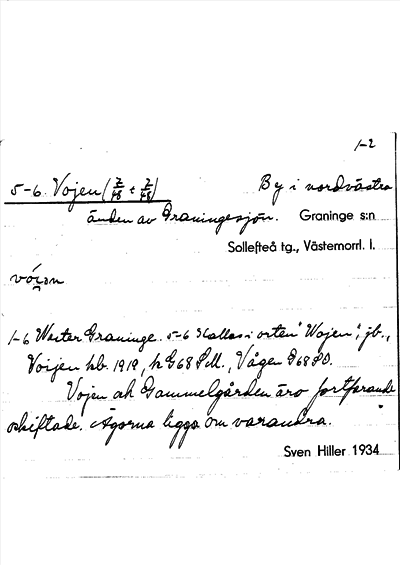 1-2
5-6. Vojen (2/48 + 2/48) By i nordvästra
änden av Graningesjön. Graninge s:n
Sollefteå tg., Västernorrl. l.
1-6 Wester Graninge. 5-6 Kallas i orten "Wojen", jb.,
Voijen hb. 1919, k G68 SM., Vågen G68 SO.
Vojen ah Gammelgården äro fortfarande
oskiftade. Ägorna ligga om varandra.
Sven Hiller 1934